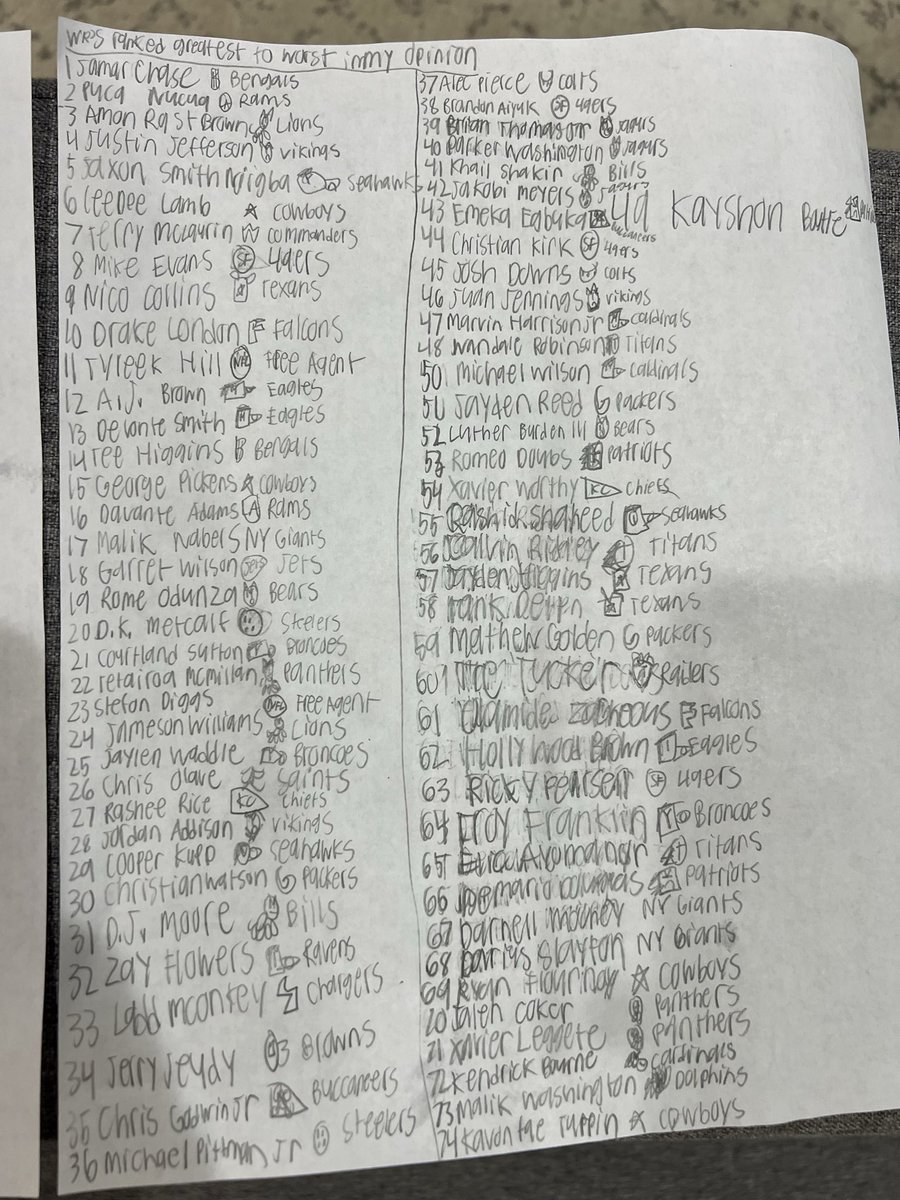 WR'S ranked greatest to worst in my opinion
1 Jamar Chase Bengals
2 Puca Nucua Rams
3 Amon Ra St Browns Lions
4 Justin Jefferson Vikings
5 Jaxon Smith Njigba Seahawks
6 CeeDee Lamb Cowboys
7 Terry Mclaurin W commanders
8 Mike Evans SF 49ers
9 Nico Collins Texans
10 Drake London F Falcons
11 Tyreek Hill NFL Free Agent
12 A.J. Brown Eagles
13 Devonte Smith Eagles
14 Tee Higgins B Bengals
15 George Pickens Cowboys
16 Davante Adams LA Rams
17 Malik Nabers NY Giants
18 Garret Wilson Jets Jets
19 Rome Odunza Bears
20 D.K. Metcalf Steelers
21 Courtland Sutton Broncoes
22 Tetairoa mcmillan Panthers
23 Stefon Diggs NFL Free Agent
24 Jameson Williams Lions
25 Jaylen Waddle Broncoes
26 Chris Olave Saints
27 Rashee Rice KC Chiefs
28 Jordan Addison Vikings
29 Cooper Kupp Seahawks
30 Christian Watson G Packers
31 D.J. Moore Bills
32 Zay Flowers Ravens
33 Ladd mconkey Chargers
34 Jerry Jeudy Browns
35 Chris Godwin Jr Buccaneers
36 Michael Pittman Jr Steelers
37 Alec Pierce colts
38 Brandan Aiyuk SF 49ers
39 Brian Thomas Jr Jagurs
40 Parker Washington Jagurs
41 Khail Shakir Bills
42 Jakobi Meyers Jagurs
43 Emeka Egbuka Buccaneers 49 Kayshon Boutte
44 Christian Kirk SF 49ers
45 Josh Downs colts
46 Juan Jennings Vikings
47 Marvin Harrison Jr Caldinals
48 Wandale Robinson Titans
50 Michael Wilson Caldinals
51 Jayden Reed G Packers
52 Luther Burden III Bears
53 Romeo Doubs Patriots
54 Xavier Worthy KC Chiefs
55 Rashid Shaheed Seahawks
56 Calvin Ridley Titans
57 Jayden Higgins Texans
58 Tank Dell Texans
59 Matthew Golden G Packers
60 Tre Tucker Raiders
61 Olamide Zacheous F Falcons
62 Hollywood Brown Eagles
63 Ricky Pearsell SF 49ers
64 Troy Franklin Broncoes
65 Titans
66 Patriots
67 Darnell Mooney NY Giants
68 Darius Slayton NY Giants
69 Ryan Flourinoy Cowboys
70 Jalen Coker Panthers
71 Xavier Leggete Panthers
72 Kendrick Bourne Cardinals
73 Malik Washington Dolphins
74 Kavontae Turpin Cowboys